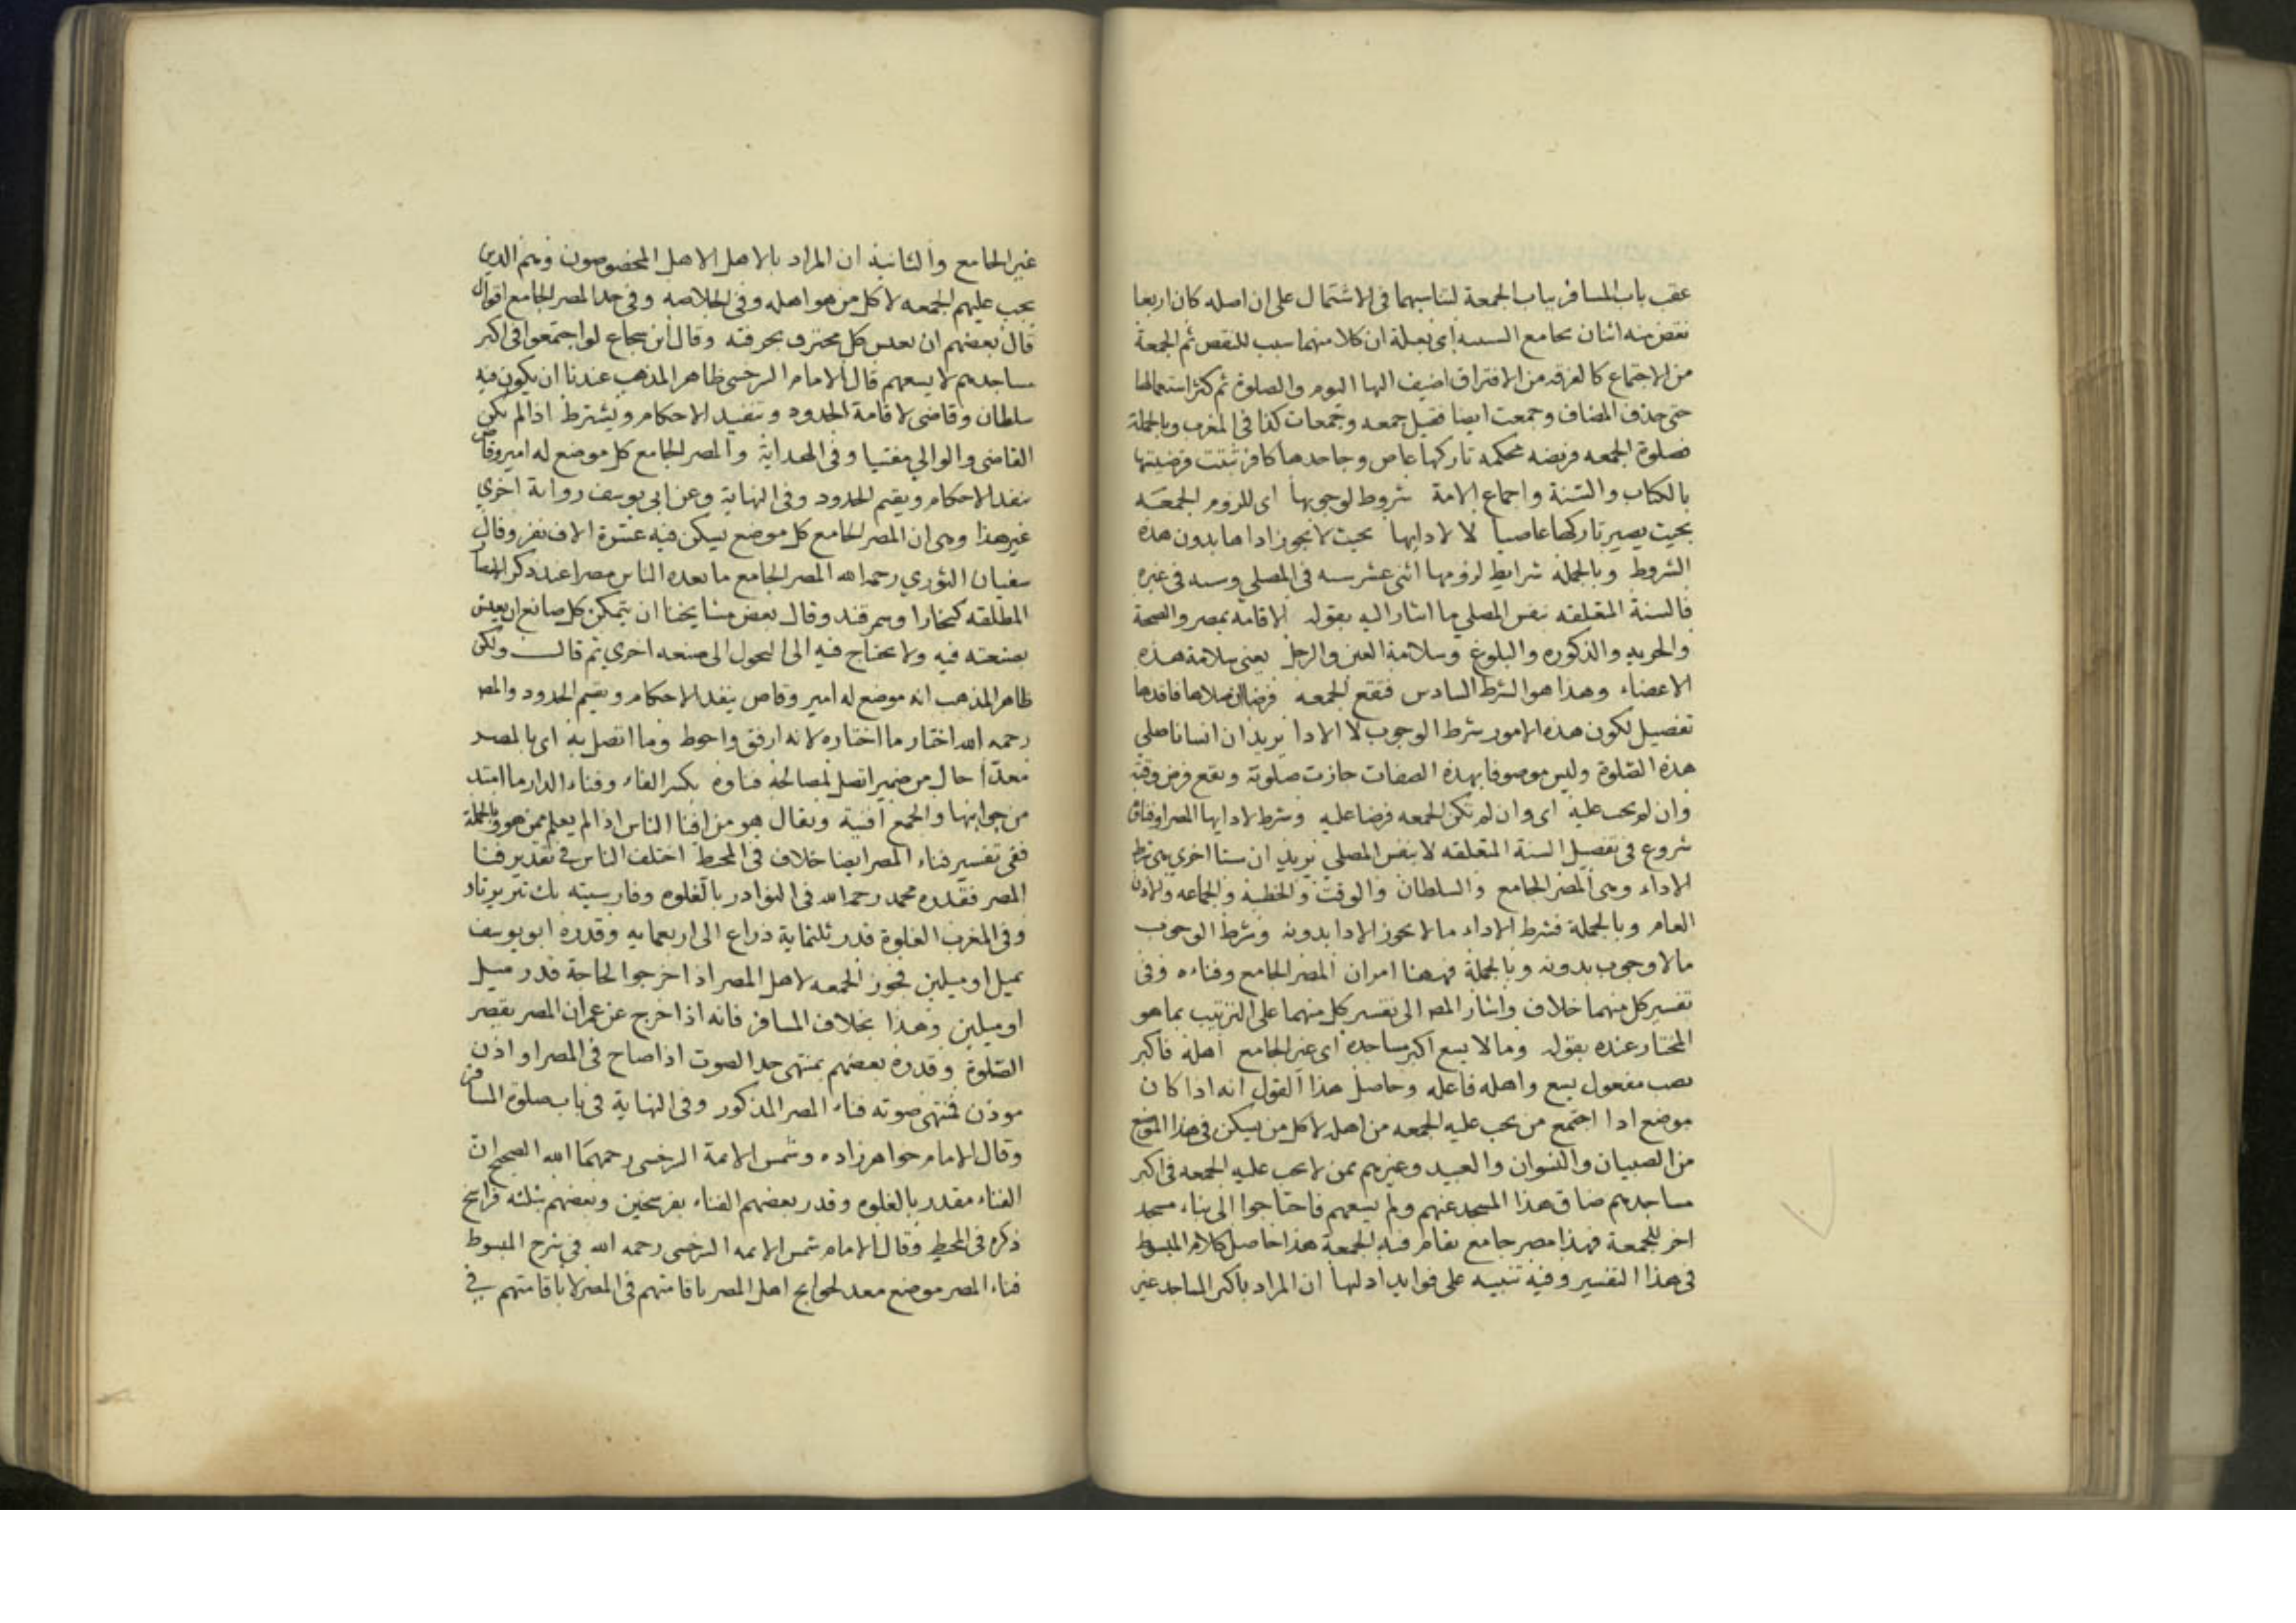 عقب باب المسافر بباب الجمعة لتناسبهما فى الاشتمال على ان اصله كان اربعا
نقض منه اثنان بجامع السببية اى بعلة ان كلا منهما سبب للنقص ثم الجمعة
من الاجتماع كالفرقه من الافتراق اضيف اليها اليوم والصلوة ثم كثر استعمالها
حتى حذف المضاف وجمعت ايضا فقيل جمعه وجمعات كذا فى المغرب وبالجملة
فصلوة الجمعه فريضه محكمه تاركها عاص وجاحدها كافر ثبتت فرضيتها
بالكتاب والسنة واجماع الامة شروط لوجوبها اى للزوم الجمعه
بحيث يصير تاركها عاصيا لا لادايها بحيث لا يجوز اداها بدون هذه
الشروط وبالجملة شرايط لزومها اثنى عشر سته فى المصلى وسته فى غيره
فالستة المتعلقه بنفس المصلي ما اشار اليه بقوله الاقامه بمصر والصحة
والحريه والذكوره والبلوغ وسلامة العين والرجل يعنى سلامة هذه
الاعضاء وهذا هو الشرط السادس فتقع الجمعه فرضا ان صلاها فاقدها
تفصيل لكون هذه الامور شرط الوجوب لا الادا يريد ان انسانا صلي
هذه الصلوة وليس موصوفا بهذه الصفات جازت صلوته ويقع فرض وقته
وان لم يجب عليه اى وان لم تكن الجمعه فرضا عليه وشرط لادايها المصر او فناؤه
شروع فى تفصيل الستة المتعلقه لا بنفس المصلي يريد ان ستا اخري هى شرط
الاداء وهى المصر الجامع والسلطان والوقت والخطبه والجماعه والاذن
العام وبالجملة فشرط الاداء ما لا يجوز الادا بدونه وشرط الوجوب
ما لا وجوب بدونه وبالجملة فههنا امران المصر الجامع وفناءه وفى
تفسير كل منهما خلاف واشار المصـ الى تفسير كل منهما على الترتيب بما هو
المختار عنده بقوله وما لا يسع اكبر مساجده اى غير الجامع اهله فاكبر
نصب مفعول يسع واهله فاعله وحاصل هذا القول انه اذا كان
موضع اذا اجتمع من يجب عليه الجمعه من اهله لا كل من يسكن فى هذا الموضع
من الصبيان والنسوان والعبيد وغيرهم ممن لا يجب عليه الجمعه فى اكبر
مساجدهم ضاق هذا المسجد عنهم ولم يسعهم فاحتاجوا الى بناء مسجد
اخر للجمعة فهذا مصر جامع يقام فيه الجمعة هذا حاصل كلام المبسوط
فى هذا التفسير وفيه تنبيه على فوايد اولها ان المراد باكبر المساجد غير
غير الجامع والثانية ان المراد بالاهل الاهل المخصوصون وهم الذين
يجب عليهم الجمعه لا كل من هو اهله وفى الخلاصه وفى حد المصر الجامع اقوال
قال بعضهم ان يعيش كل محترف بحرفته وقال ابن شجاع لو اجتمعوا فى اكبر
مساجدهم لا يسعهم قال الامام السرخسى ظاهر المذهب عندنا ان يكون فيه
سلطان وقاضى لاقامة الحدود وتنفيذ الاحكام ويشترط اذا لم يكن
القاضى والوالي مفتيا وفى الهداية والمصر الجامع كل موضع له امير وقاض
ينفد الاحكام ويقيم الحدود وفى النهاية وعن ابى يوسف رواية اخري
غير هذا وهى ان المصر الجامع كل موضع يسكن فيه عشرة الاف نفر وقال
سفيان الثوري رحمه الله المصر الجامع ما يعده الناس مصرا عند ذكر الامصار
المطلقه كبخارا وسمرقند وقال بعض مشايخنا ان يتمكن كل صانع ان يعيش
بصنعته فيه ولا يحتاج فيه الى التحول الى صنعه اخري ثم قال ولكن
ظاهر المذهب انه موضع له امير وقاص ينفد الاحكام ويقيم الحدود والمصـ
رحمه الله اختار ما اختاره لانه ارفق واحوط وما اتصل به اى بالمصر
معدا حال من ضمير اتصل لمصالحه فناوه بكسر الفاء وفناء الدار ما امتد
من جوانبها والجمع افنية ويقال هو من افنا الناس اذا لم يعلم ممن هو وبالجملة
ففى تفسير فناء المصر ايضا خلاف فى المحيط اختلف الناس فى تقدير فنا
المصر فقدره محمد رحمه الله فى النوادر بالغلوه وفارسيته يك تير پرتاو
وفى المغرب الغلوة قدر ثلثماية ذراع الى اربعمايه وقدره ابو يوسف
بميل او ميلين فجوز الجمعه لاهل المصر اذا خرجوا لحاجة قدر ميل
او ميلين وهذا بخلاف المسافر فانه اذا خرج عن عمران المصر يقصر
الصلوة وقدره بعضهم بمنتهى حد الصوت اذا صاح فى المصر او اذن
موذن فمنتهى صوته فناء المصر المذكور وفى النهاية فى باب صلوة المسافر
وقال الامام خواهرزاده وشمس الائمة السرخسى رحمهما الله الصحيح ان
الفناء مقدر بالغلوه وقدر بعضهم الفناء بفرسخين وبعضهم بثلثه فراسخ
ذكره فى المحيط وقال الامام شمس الايمه السرخسى رحمه الله فى شرح المبسوط
فناء المصر موضع معد لحوايج اهل المصر باقامتهم فى المصر لا باقامتهم في